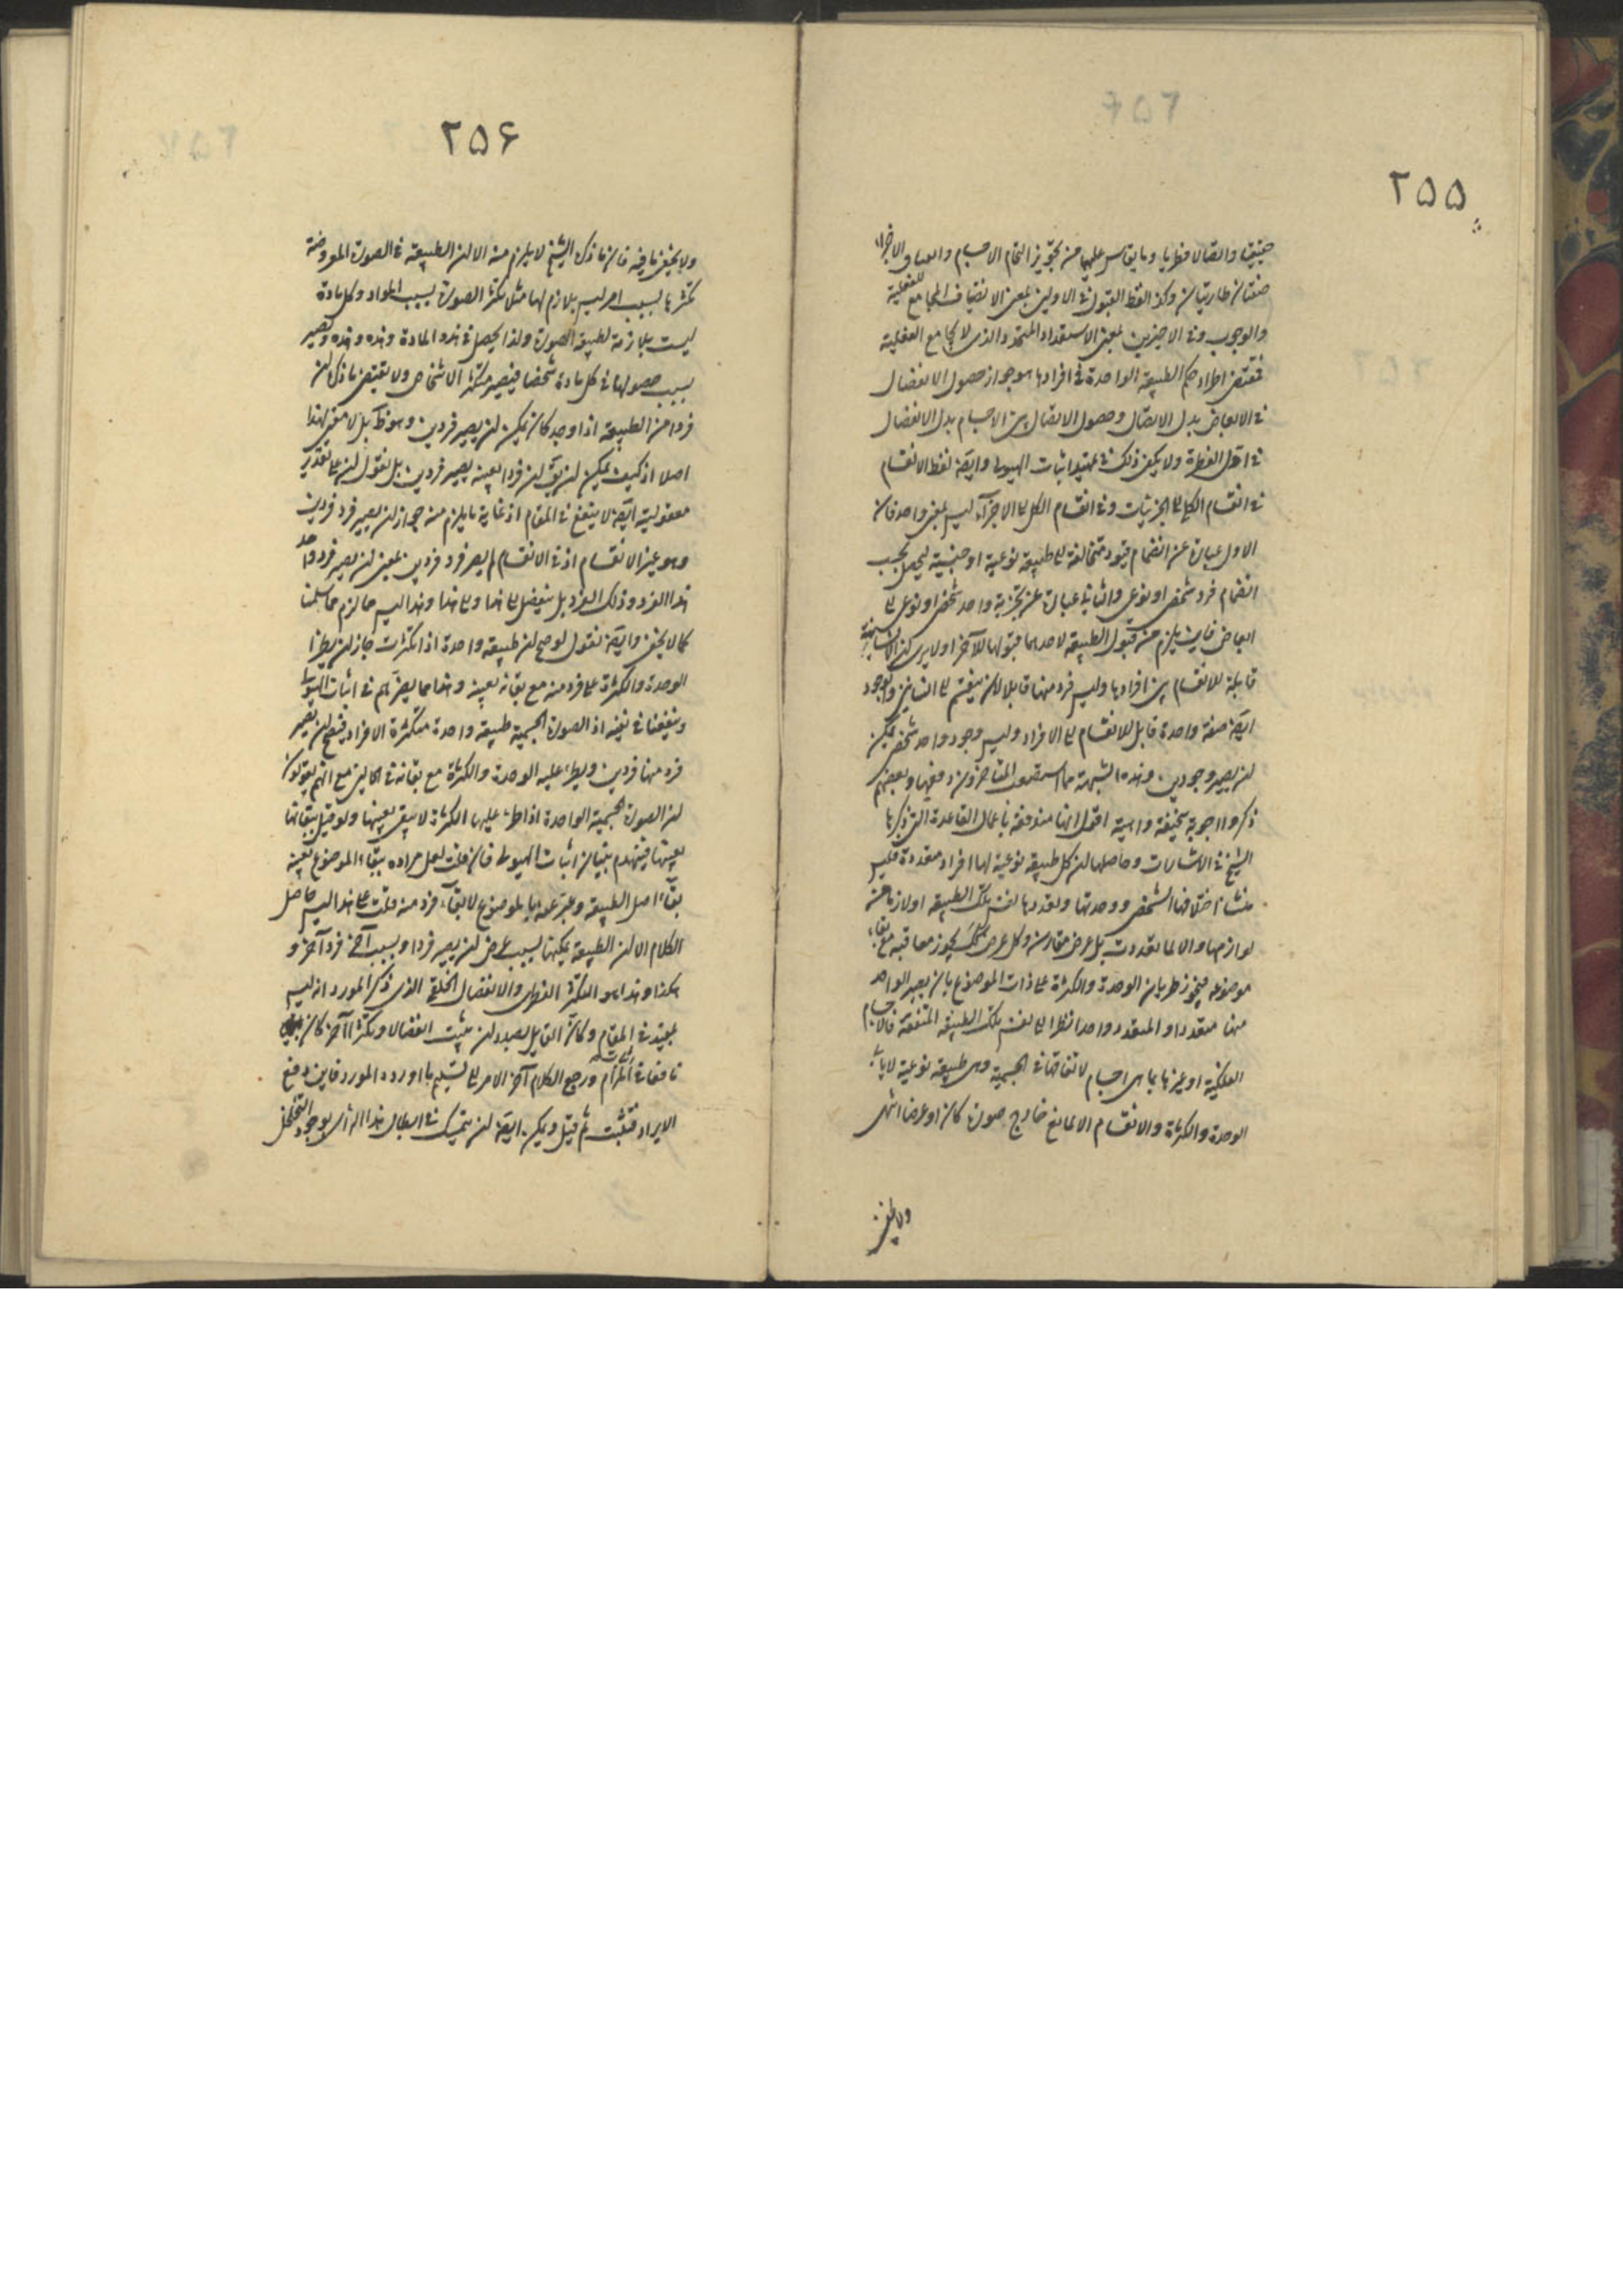 ٢٥٥
حقيقيا واتصالا فطريا وما يقاس عليها من تجويز التحام الاجسام والصاق الاجزاء
صفتان طاريتان وكذا لفظ القبول في الاولين بمعنى الاتصاف المجامع للفعلية
والوجوب وفي الاخيرين بمعنى الاستعداد المتجدد الذي لا يجامع الفعلية
فمقتضى اطراد حكم الطبيعة الواحدة في افرادها هو جواز حصول الانفصال
في الابعاض بدل الاتصال وحصول الاتصال بين الاجسام بدل الانفصال
في اول الفطرة ولا يكفي ذلك في تمهيد اثبات الهيولى وايضا لفظ الانقسام
في انقسام الكلي الى الجزئيات وفي انقسام الكل الى الاجزاء ليس بمعنى واحد فان
الاول عبارة عن انضمام قيود متخالفة الى طبيعة نوعية او جنسية ليحصل بحسب
انضمام فرد شخصي او نوعي والثاني عبارة عن تجزية واحد شخصي او نوعي الى
ابعاض فاين يلزم من قبول الطبيعة لاحدهما قبولها للآخر اولا يرى ان الانسانية
قابلة للانقسام بين افرادها وليس فرد منها قابلا لان ينقسم الى انسانين والوجود
ايضا صفة واحدة قابل للانقسام الى الافراد وليس وجود واحد شخصي يمكن
ان يصير وجودين وهذه الشبهة مما استصعب المتاخرون دفعها وبعضهم
ذكروا اجوبة سخيفة واهية اقول انها مندفعة باعمال القاعدة التي ذكرها
الشيخ في الاشارات وحاصلها ان كل طبيعة نوعية لها افراد متعددة فليس
منشأ اختلافها الشخصي ووحدتها وتعددها نفس تلك الطبيعة او لازما من
لوازمها والا لما تعددت بل عرض مفارق وكل عرض كذلك يجوز معاقبه مع بقاء
موضوعه فيجوز طريان الوحدة والكثرة على ذات الموضوع بان يصير الواحد
منها متعددا والمتعدد واحدا نظرا الى نفس تلك الطبيعة المتفقة فالاجسام
الفلكية او غيرها بما هي اجسام لاتفاقها في الجسمية وهي طبيعة نوعية لا يابى
الوحدة والكثرة والانقسام الا لمانع خارج صورة كان او عرضا انتهى
ولا يخفى
٢٥۶
ولا يخفى ما فيه فان ما ذكره الشيخ لا يلزم منه الا ان الطبيعة في الصورة المفروضة
تكثرها بسبب امر ليس بلازم لها مثلا تكثر الصورة بسبب المواد وكل مادة
ليست بلازمة لطبيعة الصورة ولذا يحصل في هذه المادة وهذه وهذه ويصير
بسبب حصولها في كل مادة شخصا فيصير متكثر الاشخاص ولا يقتضي ما ذكره ان
فردا من الطبيعة اذا وجد كان يمكن ان يصير فردين وهو ظ بل لا معنى لهذا
اصلا اذ كيف يمكن ان يق ان فردا بعينه يصير فردين بل نقول ان على تقدير
معقوليته ايضا لا ينفع في المقام اذ غاية ما يلزم منه جواز ان يصير فرد فردين
وهو غير الانقسام اذ في الانقسام لم يصر فرد فردين بمعنى ان يصير فرد واحد
هذا الفرد وذلك الفرد بل ينفصل الى هذا والى هذا وهذا ليس مما لزم مما سلمنا
كما لا يخفى وايضا نقول لو صح ان طبيعة واحدة اذا تكثرت جاز ان يطرأ
الوحدة والكثرة على فرد منه مع بقائه بعينه وهذا مما يضرهم في اثبات الهيولى
وينفعنا في نفيه اذ الصورة الجسمية طبيعة واحدة متكثرة الافراد فيصح ان يصير
فرد منها فردين ويطرء عليه الوحدة والكثرة مع بقائه في الحالين مع انهم يقولون
ان الصورة الجسمية الواحدة اذا طرء عليها الكثرة لا يبقى بعينها ولو قيل ببقائها
بعينها فينهدم بنيان اثبات الهيولى فان قلت لعل مراده ببقاء الموضوع بعينه
بقاء اصل الطبيعة وعبر عنها بالموضوع لا بقاء فرد منه قلت على هذا ليس حاصل
الكلام الا ان الطبيعة يمكنها بسبب عرض ان يصير فردا وبسبب آخر فردا آخر و
هكذا وهذا هو التكثر الفطري والانفصال الخلقي الذي ذكر المورد انه ليس
بمفيد في المقام وكان القايل بصدد ان يثبت انفصالا وتكثرا آخر كان
نافعا في المرام ورجع الكلام آخر الامر الى تسليم ما اورده المورد فاين دفع
الايراد فتثبت ثم قيل ويمكن ايضا ان يتمسك في ابطال هذا الرأي بوجود التخلخل